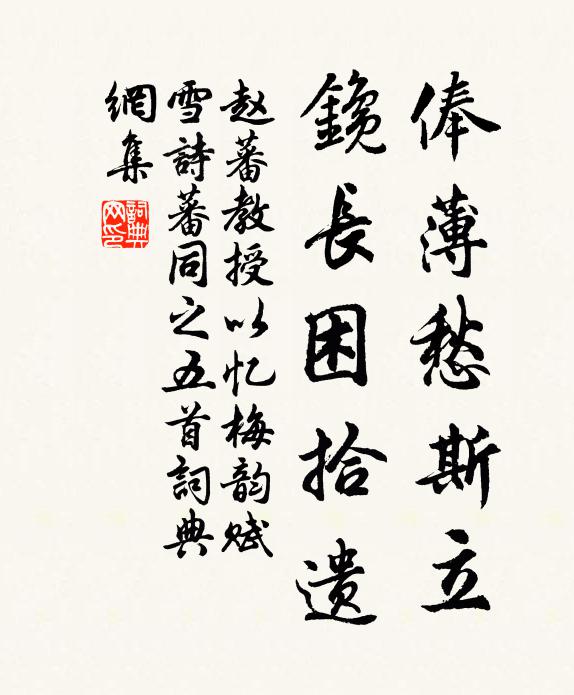 俸薄愁斯立
鑱長困拾遗
赵蕃教授以忆梅韵赋
雪詩蕃同之五首詞典
網集
詞典
网印